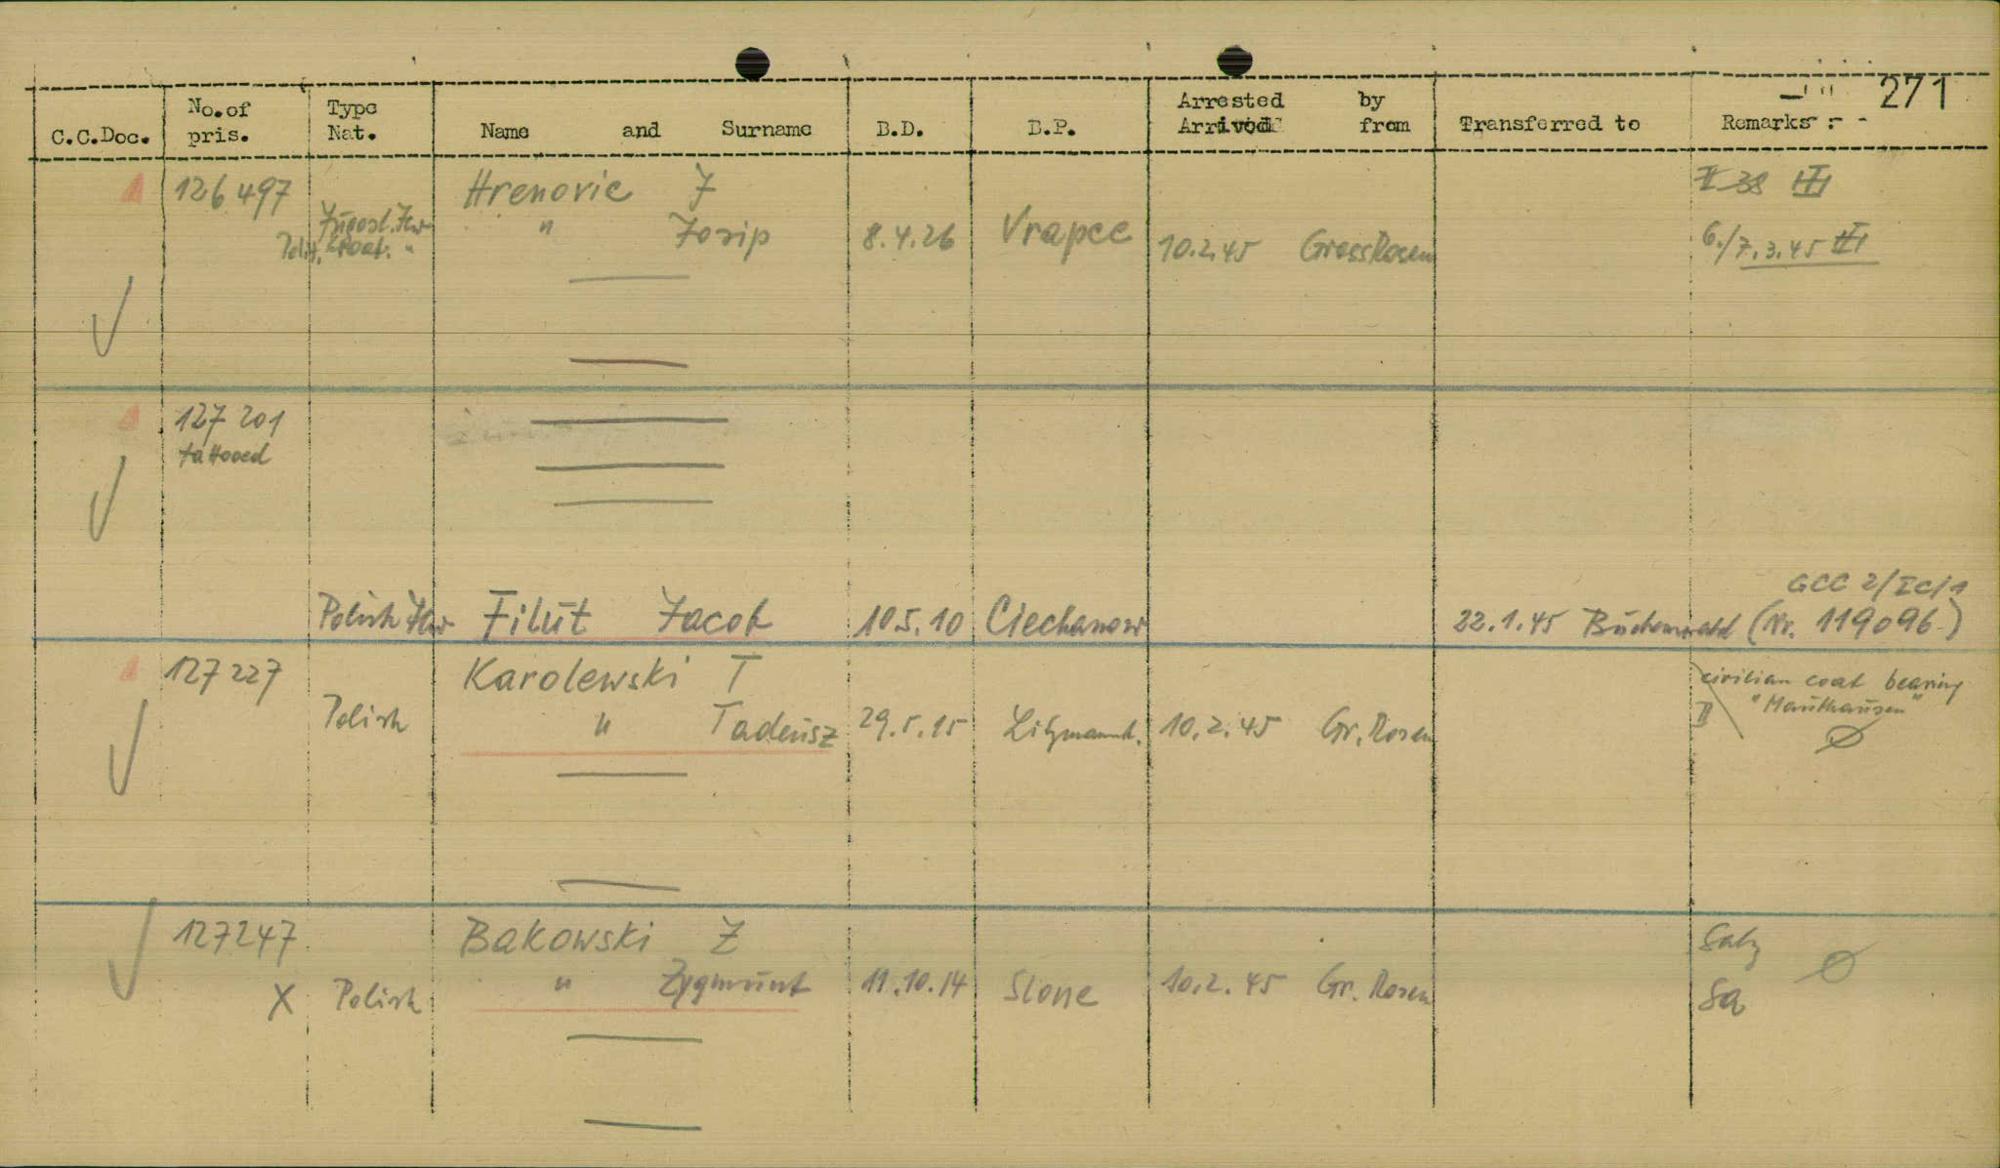 271
C.C.Doc. No.of pris. Type Nat. Name and Surname B.D. B.P. Arrested by Arrived from Transferred to Remarks :
126497 Hrenovic J II 38 III
Jugosl. Jew
Kroat. " " Josip 8.4.26 Vrapce 10.2.45 GrossRosen 6./7.3.45 III
127201
tattooed
GCC 2/IC/1
Polish Jew Filut Jacob 10.5.10 Ciechanow 22.1.45 Buchenwald (Nr. 119096)
127227 Karolewski T civilian coat bearing
"Mauthausen"
Polish " Tadeusz 29.5.15 Litzmannst. 10.2.45 Gr. Rosen II
127247 Bakowski Z
X Polish " Zygmunt 11.10.14 10.2.45 Gr. Rosen